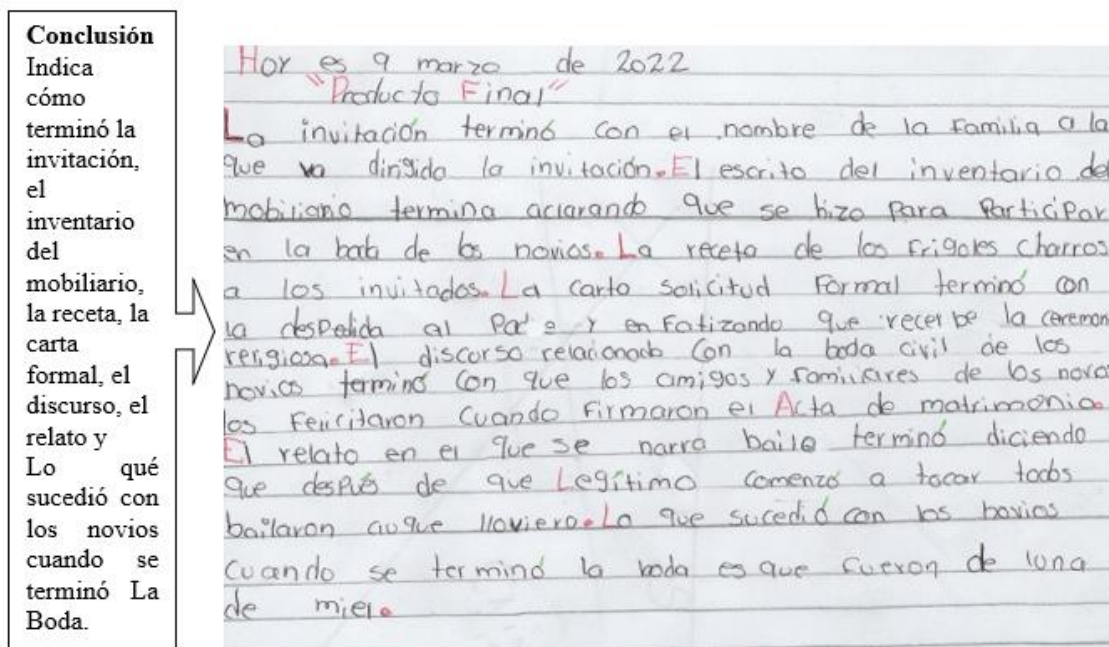 Conclusión
Indica
cómo
terminó la
invitación,
el
inventario
del
mobiliario,
la receta, la
carta
formal, el
discurso, el
relato y
Lo qué
sucedió con
los novios
cuando se
terminó La
Boda.
Hoy es 9 marzo de 2022
"Producto Final"
La invitación terminó con el nombre de la familia a la
que va dirigida la invitación. El escrito del inventario del
mobiliario termina aclarando que se hizo para Participar
en la boda de los novios. La receta de los frigoles charros
a los invitados. La carta solicitud Formal terminó con
la despedida al y enfatizando que la ceremon
religiosa. El discurso relacionado con la boda civil de los
novios terminó con que los amigos y familiares de los
los felicitaron cuando firmaron el Acta de matrimonio.
El relato en el que se narra baile terminó diciendo
que despús de que Legítimo comenzó a tocar todos
bailaron auque lloviera. Lo que sucedió con los novios
cuando se terminó la boda es que fueron de luna
de miel.